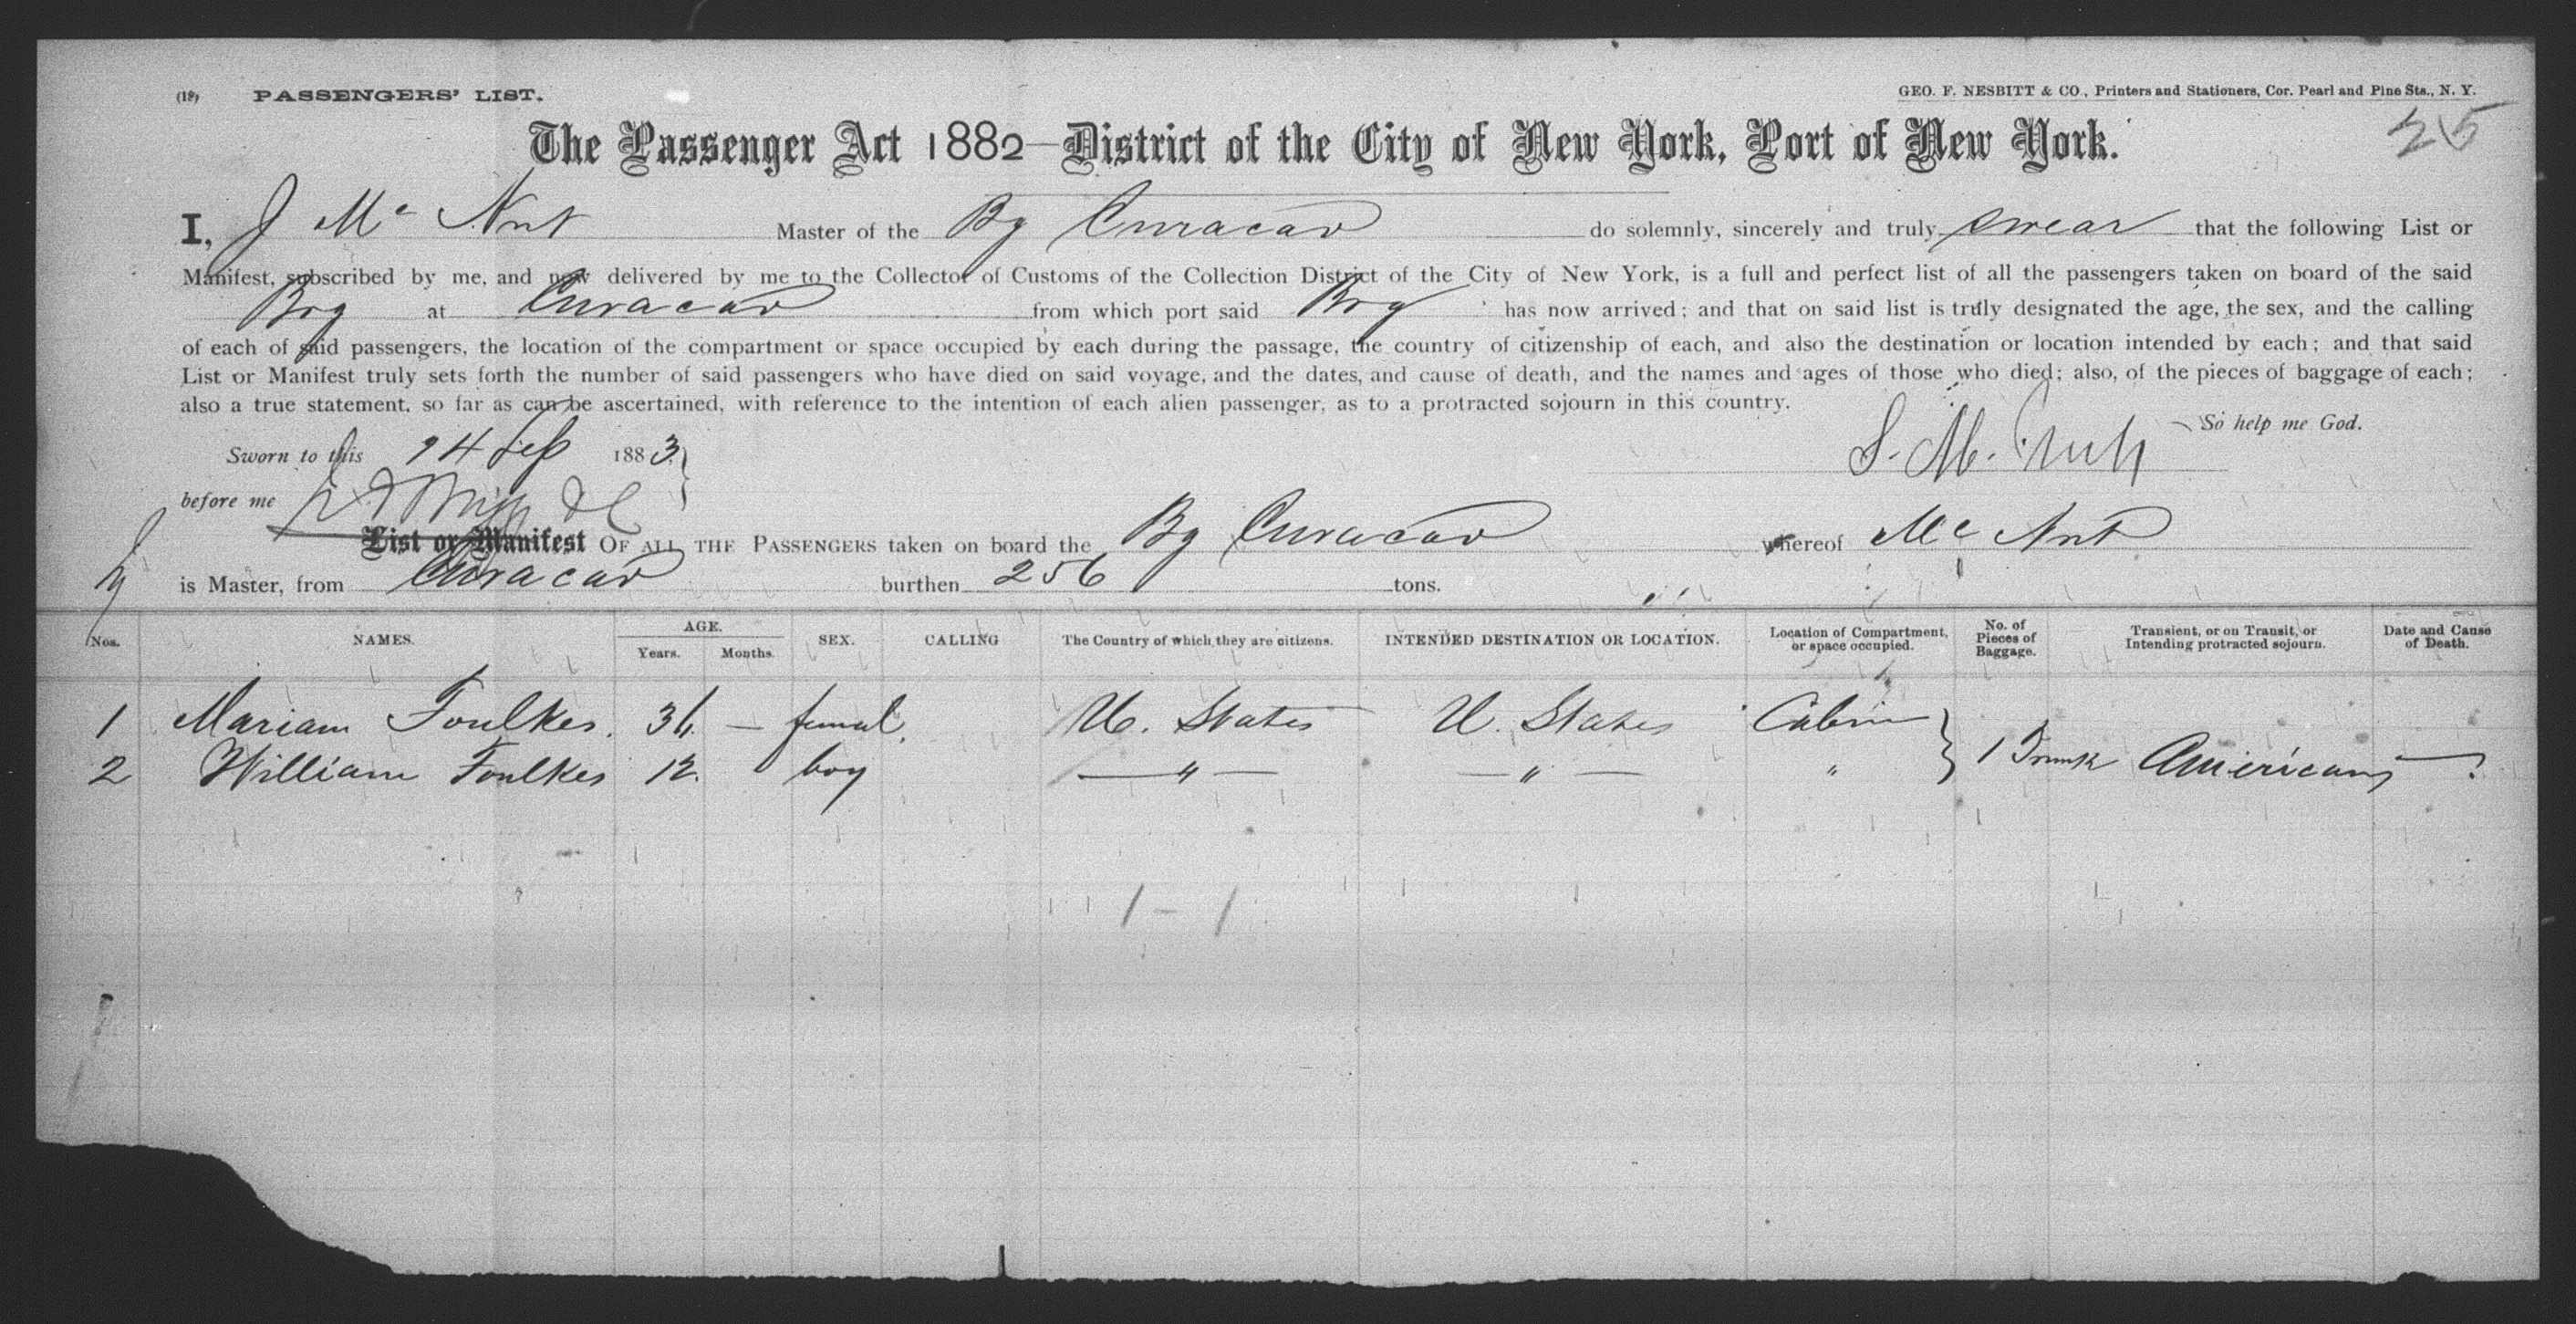 (18) PASSENGERS' LIST.
GEO. F. NESBITT & CO., Printers and Stationers, Cor. Pearl and Pine Sts., N. Y.
25
The Passenger Act 1882—District of the City of New York, Port of New York.
I, J Mc Nut Master of the Bg Curacao do solemnly, sincerely and truly swear that the following List or
Manifest, subscribed by me, and now delivered by me to the Collector of Customs of the Collection District of the City of New York, is a full and perfect list of all the passengers taken on board of the said
Brg at Curacao from which port said Brg has now arrived; and that on said list is truly designated the age, the sex, and the calling
of each of said passengers, the location of the compartment or space occupied by each during the passage, the country of citizenship of each, and also the destination or location intended by each; and that said
List or Manifest truly sets forth the number of said passengers who have died on said voyage, and the dates, and cause of death, and the names and ages of those who died; also, of the pieces of baggage of each;
also a true statement, so far as can be ascertained, with reference to the intention of each alien passenger, as to a protracted sojourn in this country.
So help me God.
Sworn to this 14 Sep 1883
before me
List or Manifest OF ALL THE PASSENGERS taken on board the Bg Curacao whereof Mc Nut
is Master, from Curacao burthen 256 tons.
Nos. NAMES. AGE. Years. Months. SEX. CALLING The Country of which they are citizens. INTENDED DESTINATION OR LOCATION. Location of Compartment, or space occupied. No. of Pieces of Baggage. Transient, or on Transit, or Intending protracted sojourn. Date and Cause of Death.
1 Mariam Foulkes. 36. — femal. U. States U. States Cabin
2 William Foulkes 12. boy — " — — " — " } 1 Trunk Americans
1 - 1